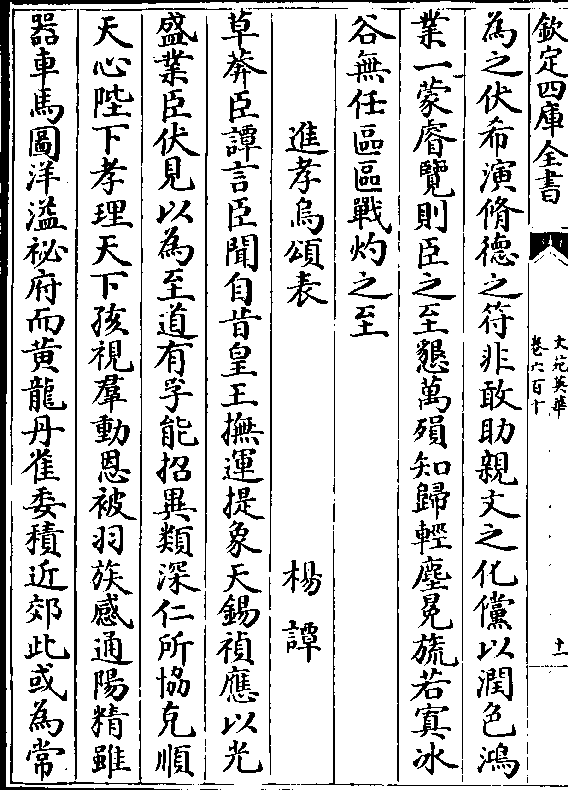 欽定四庫全書
文苑英華
卷六百十
十一
為之伏希演脩德之符非敢助親文之化儻以潤色鴻
業一蒙睿覽則臣之至懇萬殞知歸輕塵冕旒若寘冰
谷無任區區戰灼之至
進孝烏頌表 楊譚
草莽臣譚言臣聞自昔皇王撫運提象天錫禎應以光
盛業臣伏見以為至道有孚能招異類深仁所協克順
天心陛下孝理天下孩視羣動恩被羽族感通陽精雖
器車馬圖洋溢祕府而黄龍丹雀委積近郊此或為常